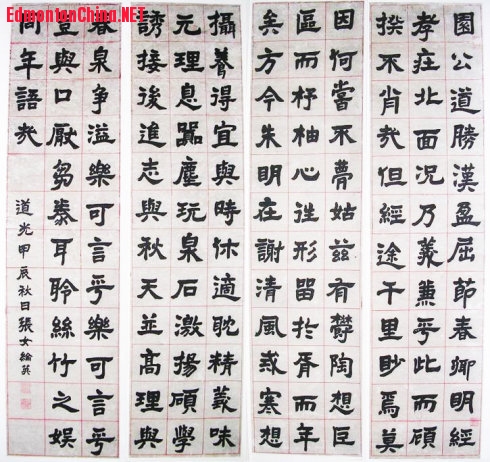 EdmontonChina.NET
園公道勝漢盈屈節春卿明經
孝莊北面況乃義兼乎此而顧
揆不肖哉但經途千里眇焉莫
因何嘗不夢姑茲有鬱陶想巨
區而杼柚心往形留於胥而年
矣方今朱明在謝清風戒寒想
攝養得宜與時休適耽精義味
元理息囂塵玩泉石激揚碩學
誘接後進志與秋天並高理與
春泉爭溢樂可言乎樂可言乎
豈與口厭芻豢耳聆絲竹之娛
同年語哉
道光甲辰秋日張女綸英